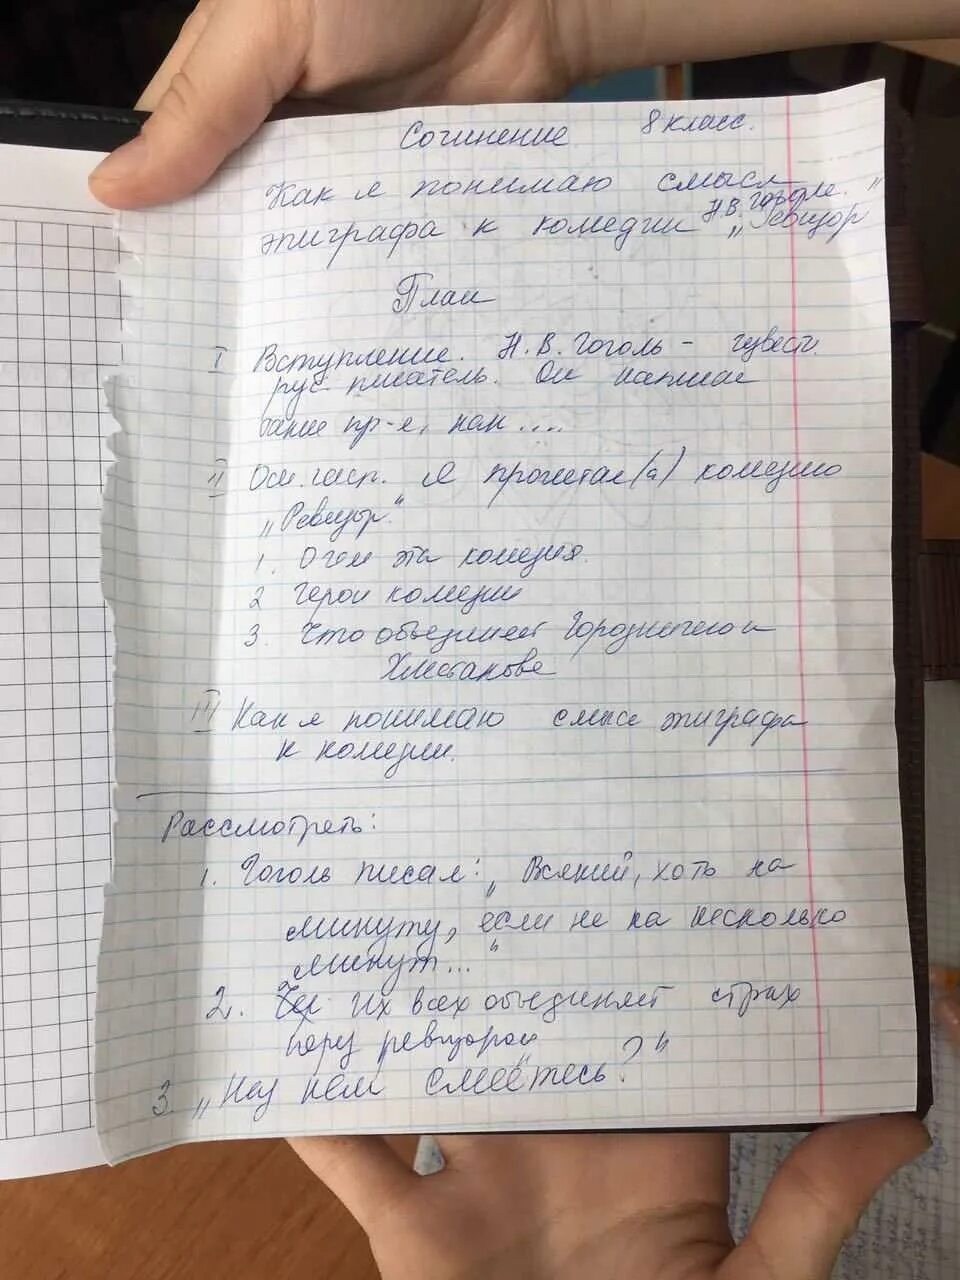 Сочинение 8 класс.
Как я понимаю смысл
эпиграфа к комедии Н.В. Гоголя „Ревизор"
План
I Вступление. Н. В. Гоголь –
рус. писатель. Он написал
такие пр-я, как ....
II Осн. часть. Я прочитал(а) комедию
„Ревизор."
1. О чём эта комедия.
2 Герои комедии
3. Что объединяет Городничего и
Хлестакова
III Как я понимаю смысл эпиграфа
к комедии.
Рассмотреть:
1. Гоголь писал: „Всякий, хоть на
минуту, если не на несколько
минут..."
2. их всех объединяет страх
перед ревизором
3. „Над кем смеётесь?"